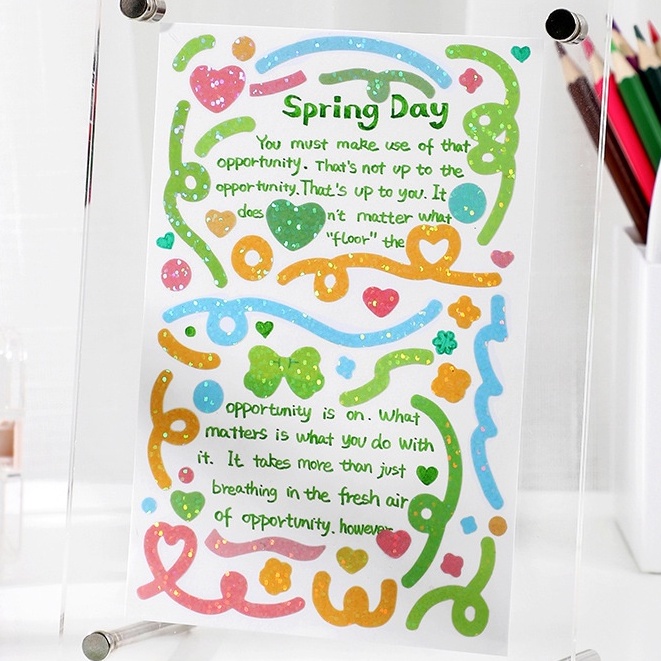 Spring Day
You must make use of that
opportunity. That's not up to the
opportunity. That's up to you. It
does n't matter what
"floor" the
opportunity is on. What
matters is what you do with
it. It takes more than just
breathing in the fresh air
of opportunity. however